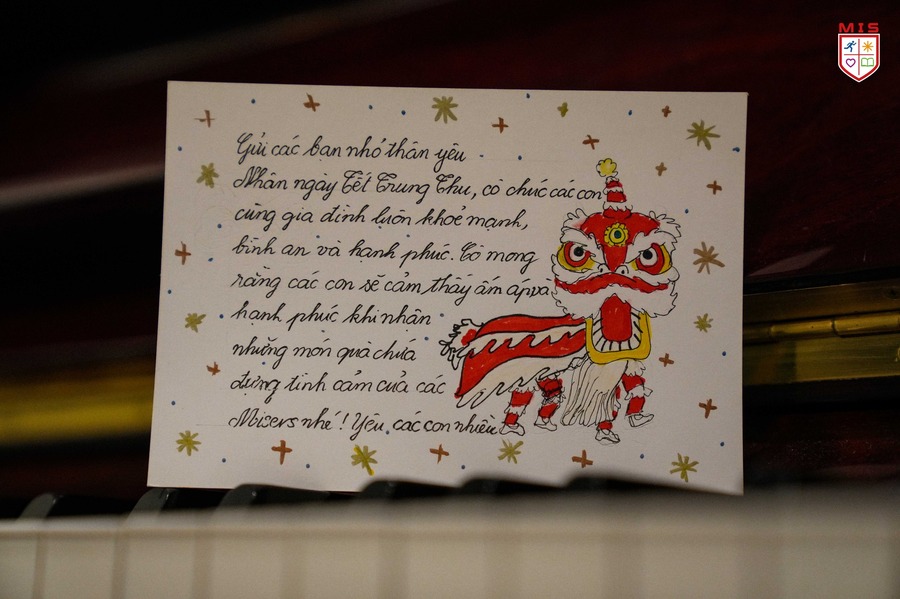 MIS
Gửi các bạn nhỏ thân yêu
Nhân ngày Tết Trung Thu, cô chúc các con
cùng gia đình luôn khoẻ mạnh,
bình an và hạnh phúc. Cô mong
rằng các con sẽ cảm thấy ấm áp và
hạnh phúc khi nhận
những món quà chứa
đựng tình cảm của các
Moisers nhé! Yêu các con nhiều